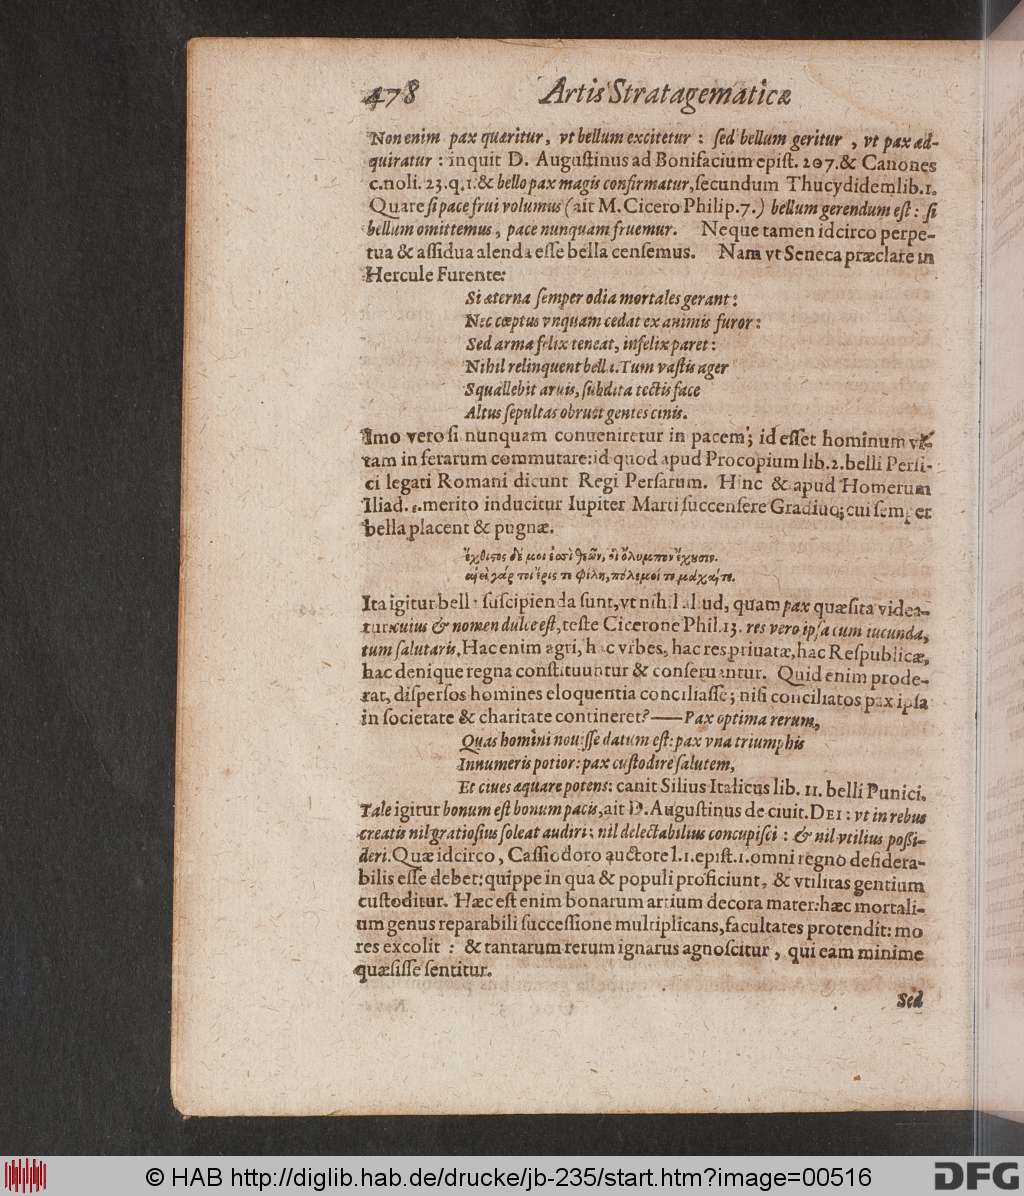 478 Artis Stratagematicæ
Non enim pax quæritur, vt bellum excitetur : ſed bellum geritur , vt pax æd-
quiratur : inquit D. Auguſtinus ad Bonifacium epiſt. 207. & Canones
c. noli. 23. q. 1. & bello pax magis confirmatur, ſecundum Thucydidem lib. 1.
Quare ſi pace frui volumus (ait M. Cicero Philip. 7.) bellum gerendum eſt : ſi
bellum omittemus, pace nunquam fruemur. Neque tamen idcirco perpe-
tua & aſſidua alenda eſſe bella cenſemus. Nam vt Seneca præclare in
Hercule Furente:
Si æterna ſemper odia mortales gerant:
Nec cœptus vnquam cedat ex animis furor:
Sed arma felix teneat, infelix paret:
Nihil relinquent bella. Tum vaſtis ager
Squallebit aruis, ſubdita tectis face
Altus ſepultas obruet gentes cinis.
Imo vero ſi nunquam conueniretur in pacem; id eſſet hominum vi-
tam in ferarum commutare: id quod apud Procopium lib. 2. belli Perſi-
ci legati Romani dicunt Regi Perſarum. Hinc & apud Homerum
Iliad. ε. merito inducitur Iupiter Marti ſuccenſere Gradiuo; cui ſemper
bella placent & pugnæ.
ἔχθιςος δέ μοι ἐσσὶ θεῶν, οἳ ὄλυμπον ἔχουσιν.
αἰεὶ γάρ τοι ἔρις τε φίλη, πόλεμοί τε μάχαι τε.
Ita igitur bella ſuſcipienda ſunt, vt nihil aliud, quam pax quæſita videa-
tur: cuius & nomen dulce eſt, teſte Cicerone Phil. 13. res vero ipſa cum iucunda,
tum ſalutaris. Hac enim agri, hac vrbes, hac res priuatæ, hac Reſpublicæ,
hac denique regna conſtituuntur & conſeruantur. Quid enim prode-
rat, diſperſos homines eloquentia conciliaſſe; niſi conciliatos pax ipſa
in ſocietate & charitate contineret?—— Pax optima rerum,
Quas homini nouiſſe datum eſt: pax vna triumphis
Innumeris potior: pax cuſtodire ſalutem,
Et ciues æquare potens: canit Silius Italicus lib. 11. belli Punici.
Tale igitur bonum eſt bonum pacis, ait D. Auguſtinus de ciuit. DEI : vt in rebus
creatis nil gratioſius ſoleat audiri; nil delectabilius concupiſci : & nil vtilius poſſi-
deri. Quæ idcirco, Caſſiodoro auctore l. 1. epiſt. 1. omni regno deſidera-
bilis eſſe debet: quippe in qua & populi proficiunt, & vtilitas gentium
cuſtoditur. Hæc eſt enim bonarum artium decora mater: hæc mortali-
um genus reparabili ſucceſſione multiplicans, facultates protendit: mo
res excolit : & tantarum rerum ignarus agnoſcitur , qui eam minime
quæſiſſe ſentitur.
Sed
© HAB http://diglib.hab.de/drucke/jb-235/start.htm?image=00516
DFG